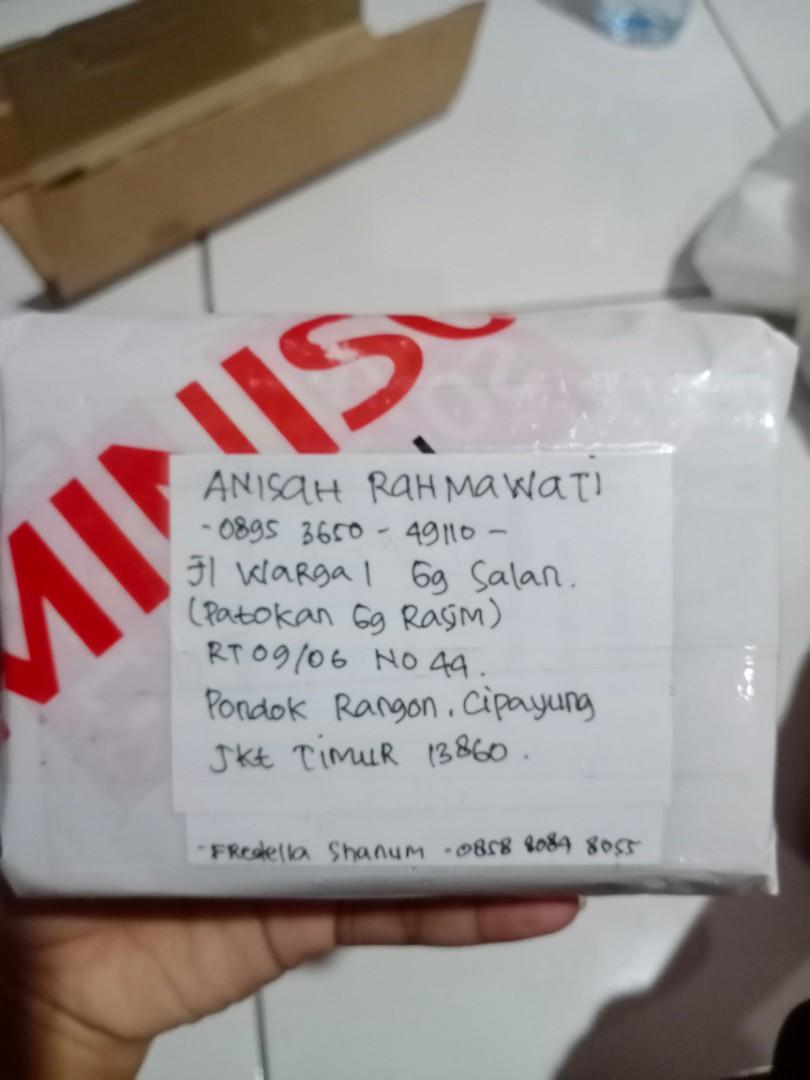 MINISO
ANISAH RAHMAWATI
-0895 3650 - 49110 -
Jl Warga 1 Gg Salan.
(Patokan Gg Rasim)
RT 09/06 NO 44.
Pondok Rangon. Cipayung
Jkt TIMUR 13860.
-FRedella Shanum -0858 8084 8055